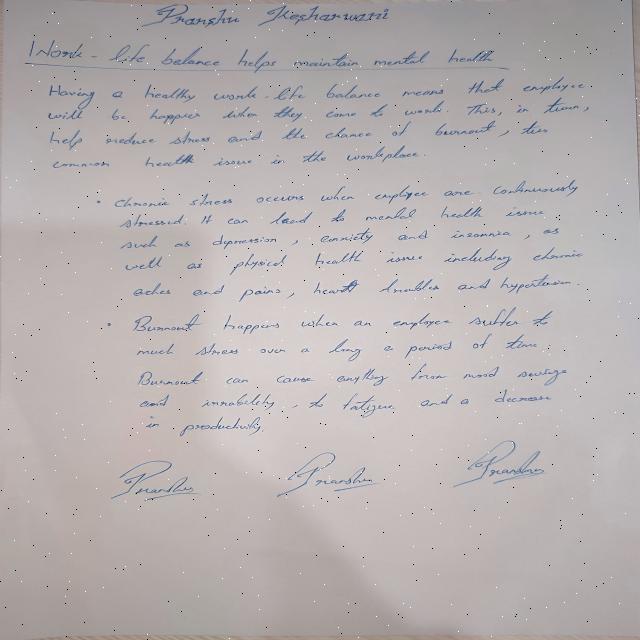 Pranshu Kesharwani
Work - life balance helps maintain mental health
Having a healthy work-life balance means that employee
will be happier when they come to work. This, in turn,
help reduce stress and the chance of burnout, two
common health issue in the workplace.
• Chronic stress occurs when employee are continuously
stressed. It can lead to mental health issue
such as depression, anxiety and insomnia, as
well as physical health issue including chronic
aches and pains, heart troubles and hypertension.
• Burnout happens when an employee suffer to
much stress over a long a period of time.
Burnout can cause anything from mood swings
and irritability, to fatigue and a decrease
in productivity.
Pranshu Pranshu Pranshu